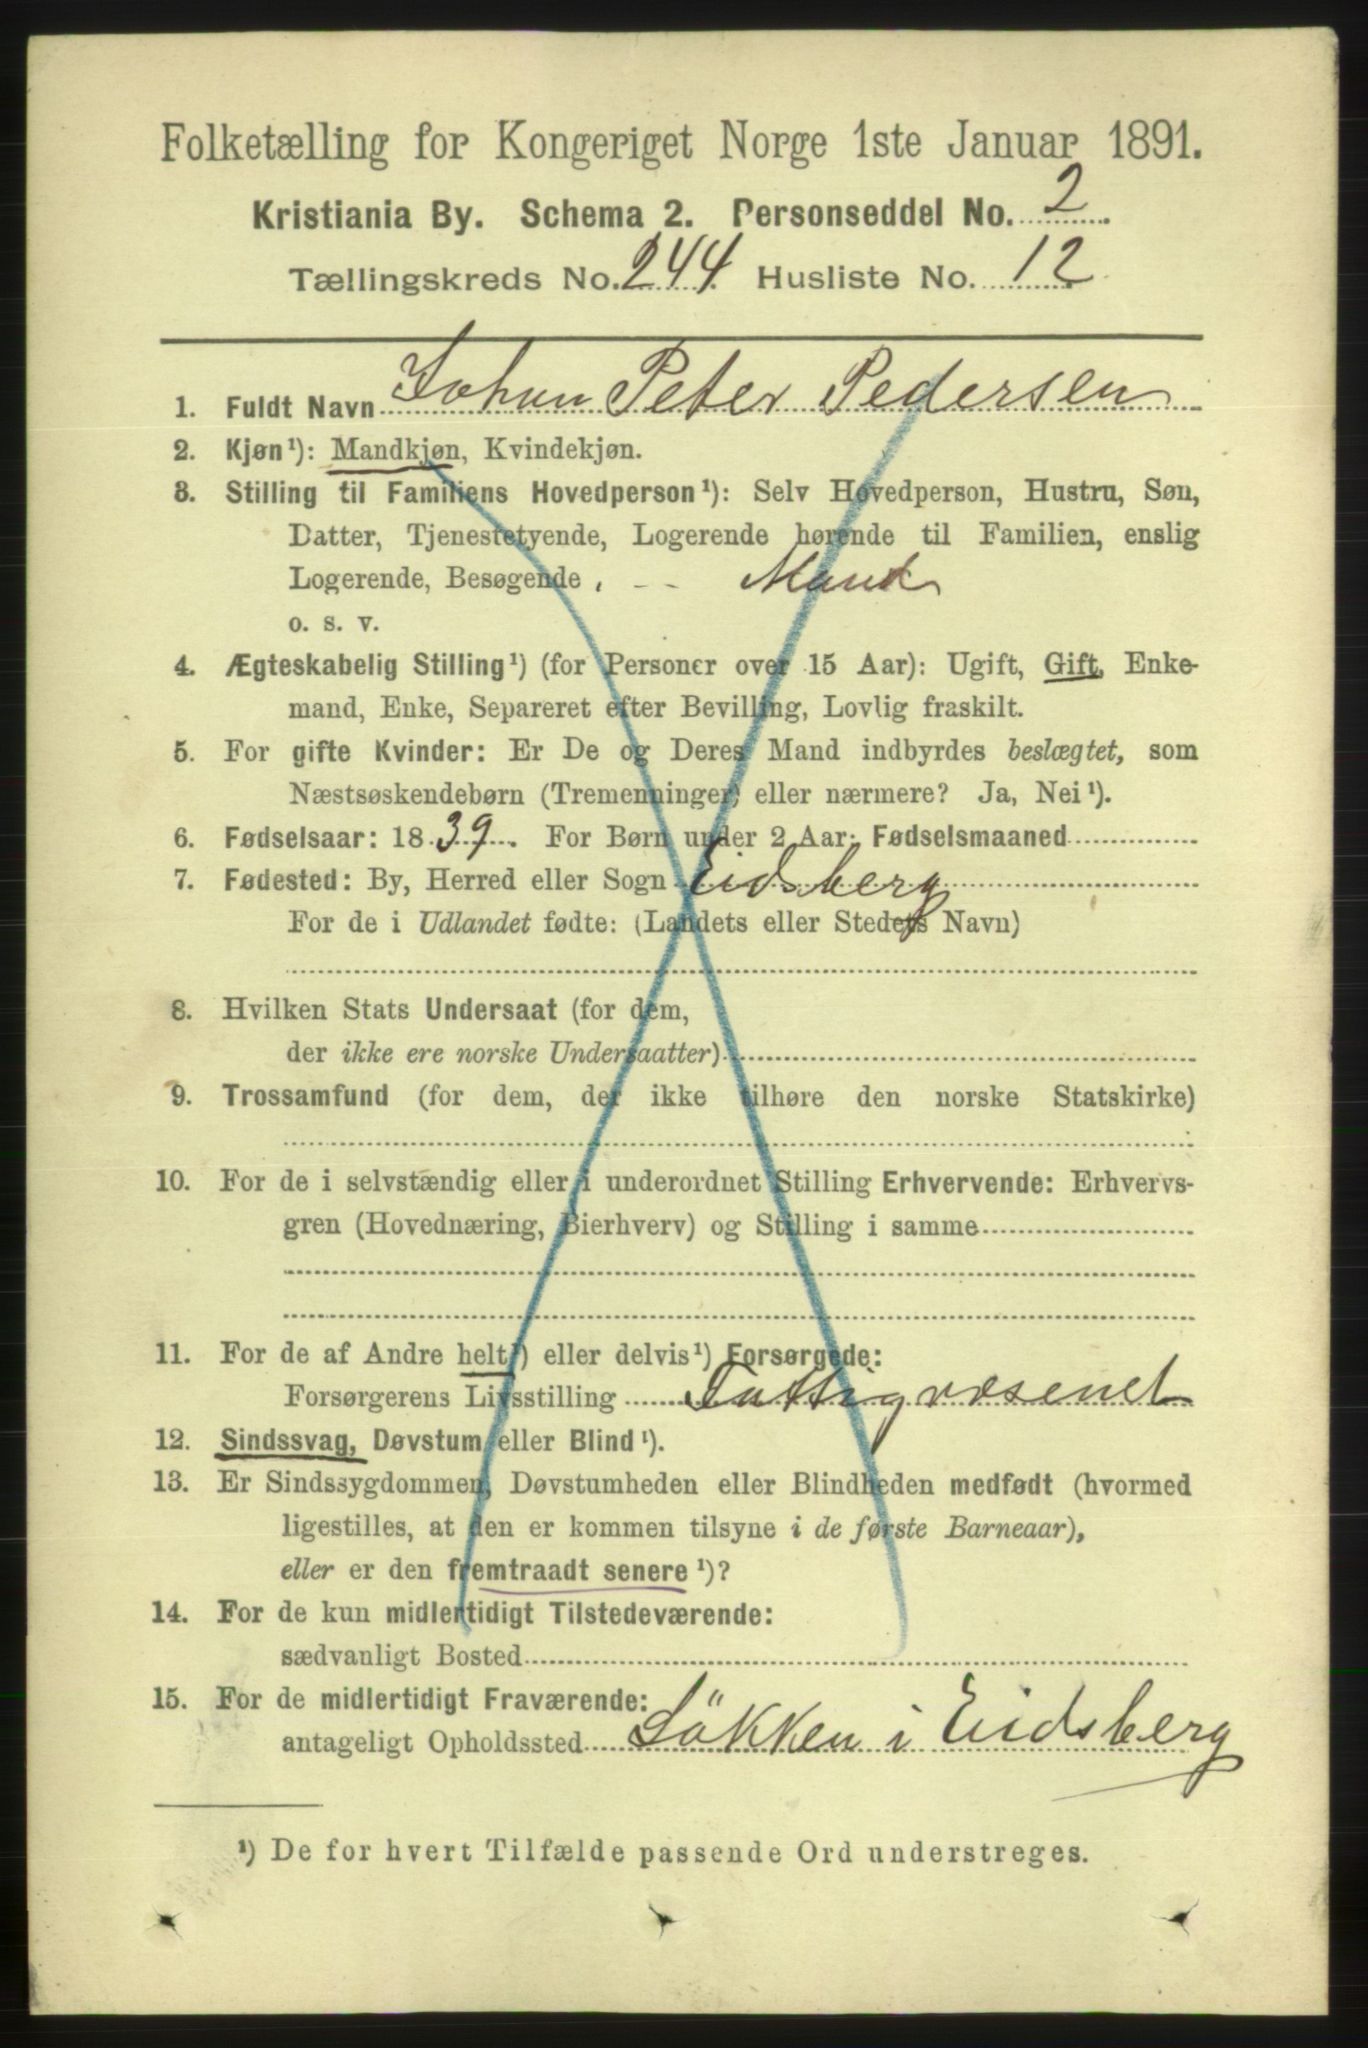 Folketælling for Kongeriget Norge 1ste Januar 1891.
Kristiania By. Schema 2. Personseddel No. 2
Tællingskreds No. 244 Husliste No. 12
1. Fuldt Navn Johan Peter Pedersen
2. Kjøn¹): Mandkjøn, Kvindekjøn.
3. Stilling til Familiens Hovedperson¹): Selv Hovedperson, Hustru, Søn,
Datter, Tjenestetyende, Logerende hørende til Familien, enslig
Logerende, Besøgende . - - Mand
o. s. v.
4. Ægteskabelig Stilling¹) (for Personer over 15 Aar): Ugift, Gift, Enke-
mand, Enke, Separeret efter Bevilling, Lovlig fraskilt.
5. For gifte Kvinder: Er De og Deres Mand indbyrdes beslægtet, som
Næstsøskendebørn (Tremenninger) eller nærmere? Ja, Nei¹).
6. Fødselsaar: 1839. For Børn under 2 Aar: Fødselsmaaned
7. Fødested: By, Herred eller Sogn Eidsberg
For de i Udlandet fødte: (Landets eller Stedets Navn)
8. Hvilken Stats Undersaat (for dem,
der ikke ere norske Undersaatter)
9. Trossamfund (for dem, der ikke tilhøre den norske Statskirke)
10. For de i selvstændig eller i underordnet Stilling Erhvervende: Erhvervs-
gren (Hovednæring, Bierhverv) og Stilling i samme
11. For de af Andre helt¹) eller delvis¹) Forsørgede:
Forsørgerens Livsstilling Fattigvæsenet
12. Sindssvag, Døvstum eller Blind¹).
13. Er Sindssygdommen, Døvstumheden eller Blindheden medfødt (hvormed
ligestilles, at den er kommen tilsyne i de første Barneaar),
eller er den fremtraadt senere¹)?
14. For de kun midlertidigt Tilstedeværende:
sædvanligt Bosted
15. For de midlertidigt Fraværende:
antageligt Opholdssted Lökken i Eidsberg
¹) De for hvert Tilfælde passende Ord understreges.